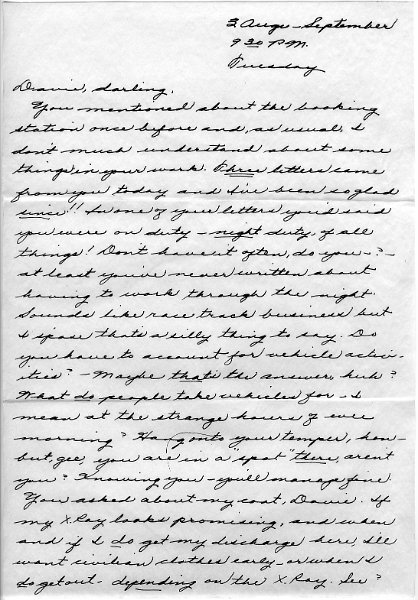 2 Augu-September
9 30 P.M.
Tuesday
Davie, darling,
You mentioned about the booking
station once before and, as usual, I
don't much understand about some
things in your work. Three letters came
from you today and I've been so glad
since!! In one of your letters you'd said
you were on duty - night duty, of all
things! Don't have it often, do you -?-
at least you've never written about
having to work through the night.
Sounds like race track business but
I spose thats a silly thing to say. Do
you have to account for vehicle activi-
ties? - Maybe that's the answer, huh?
What do people take vehicles for - I
mean at the strange hours of wee
morning? Hang onto your temper, hon-
but, gee, you are in a "spot" there, arent
you? Knowing you - you'll manage fine
You asked about my coat, Davie. If
my X Ray looks promising, and when
and if I do get my discharge here, I'll
want civilian clothes early - or when I
do get out - depending on the X Ray. See?